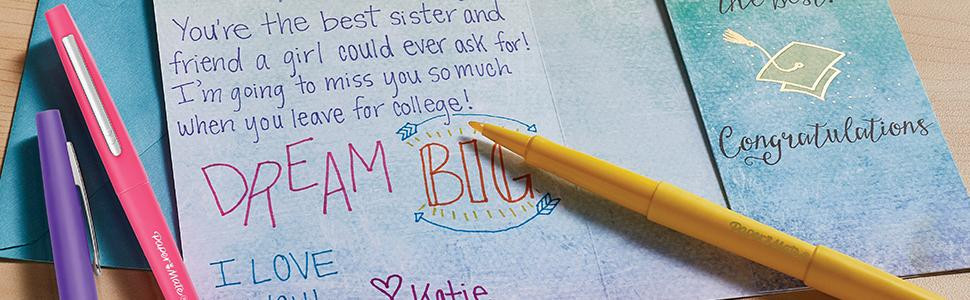 You're the best sister and
friend a girl could ever ask for!
I'm going to miss you so much
when you leave for college!
DREAM BIG
I LOVE
Katie
the best!
Congratulations
Paper Mate
Paper Mate